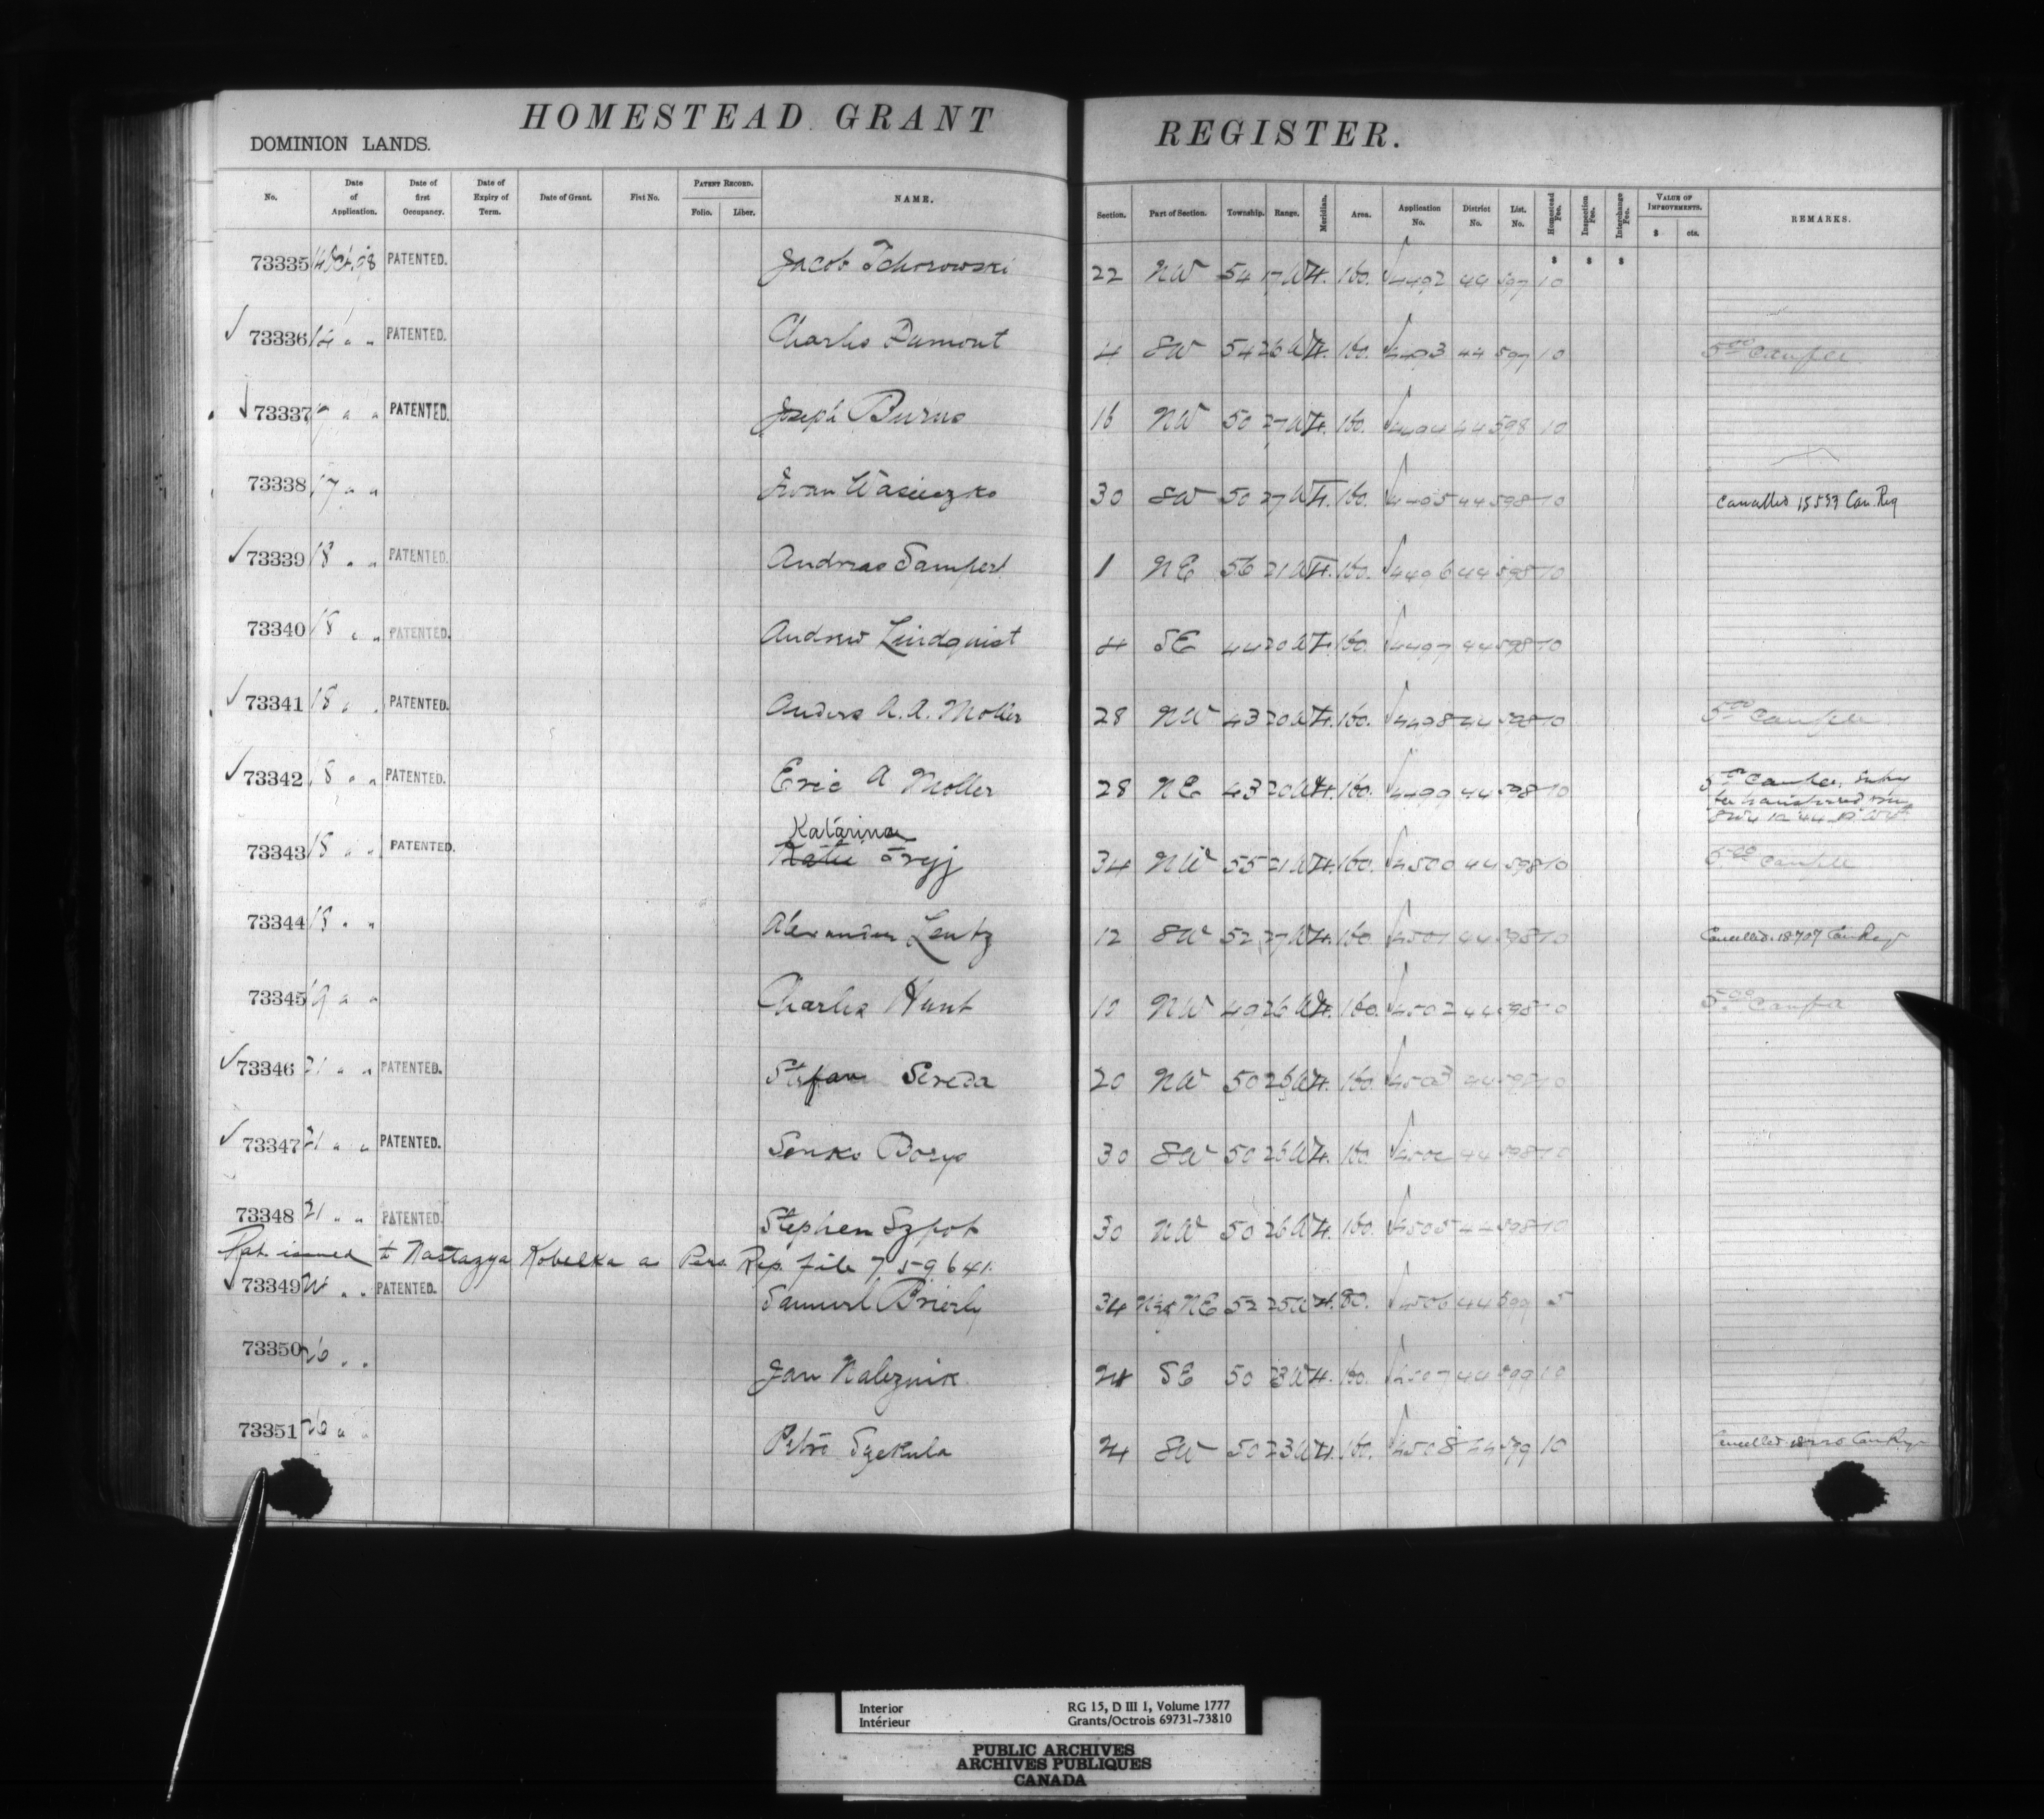 HOMESTEAD GRANT REGISTER.
DOMINION LANDS.
No. Date of Application. Date of first Occupancy. Date of Expiry of Term. Date of Grant. Fiat No. PATENT RECORD. Folio. Liber. NAME. Section. Part of Section. Township. Range. Meridian. Area. Application No. District No. List. No. Homestead Fee. Inspection Fee. Interchange Fee. VALUE OF IMPROVEMENTS. $ cts. REMARKS.
73335 14 Oct. 98 PATENTED. Jacob Tchorowski 22 NW 54 17 W 4. 160. 4492 44 597 10
73336 14 " " PATENTED. Charles Dumont 4 SW 54 26 W 4. 160. 4493 44 597 10 5 00
73337 17 " " PATENTED. Joseph Burns 16 NW 50 27 W 4. 160. 4494 44 598 10
73338 17 " " Iwan Wasieczko 30 SW 50 27 W 4. 160. 4495 44 598 10 Cancelled 15593 Can. Reg
73339 18 " " PATENTED. Andreas Sampert 1 NE 56 21 W 4. 160. 4496 44 598 10
73340 18 " " PATENTED. Andrew Lindquist 4 SE 44 20 W 4. 160. 4497 44 598 10
73341 18 " " PATENTED. Anders A. A. Moller 28 NW 43 20 W 4. 160. 4498 44 598 10 5 00
73342 18 " " PATENTED. Eric A Moller 28 NE 43 20 W 4. 160. 4499 44 598 10
Katarina
73343 18 " " PATENTED. Katie Oryj 34 NW 55 21 W 4. 160. 4500 44 598 10
73344 18 " " Alexander Lentz 12 SW 52 27 W 4. 160. 4501 44 598 10 Cancelled 18707 Can Reg
73345 19 " " Charles Hunt 10 NW 49 26 W 4. 160. 4502 44 598 10 5 00
73346 21 " " PATENTED. Stefan Sereda 20 NW 50 26 W 4. 160 4503 44 598 10
73347 21 " " PATENTED. Senko Borys 30 SW 50 26 W 4. 160 4504 44 598 10
73348 21 " " PATENTED. Stephen Szpot 30 NW 50 26 W 4. 160. 4505 44 598 10
Pat. issued to Nastazya Kobelka as Pers. Rep. file 759641.
73349 " " PATENTED. Samuel Brierly 34 NE 52 25 W 4. 80. 4506 44 599 5
73350 26 " " Jan Naleznik 24 SE 50 23 W 4. 160. 4507 44 599 10
73351 26 " " Petro Szekula 24 SW 50 23 W 4. 160. 4508 44 599 10 Cancelled Can Reg
Interior RG 15, D III 1, Volume 1777
Intérieur Grants/Octrois 69731-73810
PUBLIC ARCHIVES
ARCHIVES PUBLIQUES
CANADA